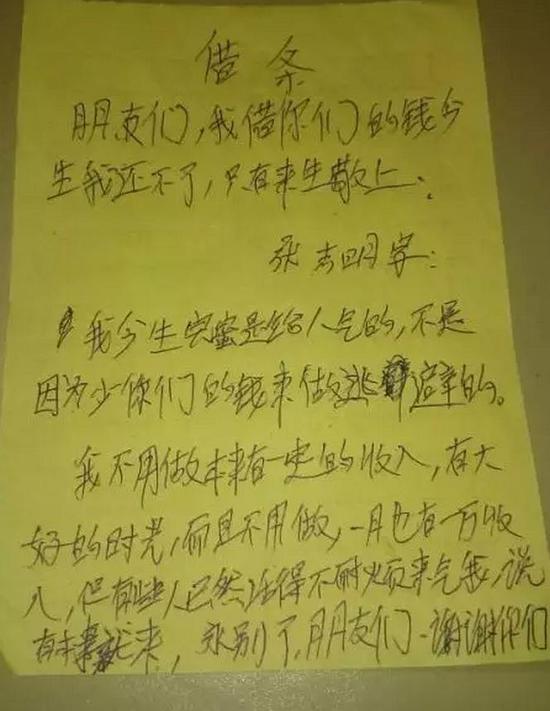 借条
朋友们，我借你们的钱今
生我还不了，只有来生敬上：
张志明字：
我今生完蜜是给人气的，不是
因为少你们的钱来做逃避的。
我不用做本来有一定的收入，有大
好的时光，而且不用做，一月也有一万收
入，但有些人已然活得不耐烦来气我，说
有本事就来，永别了，朋友们－谢谢你们